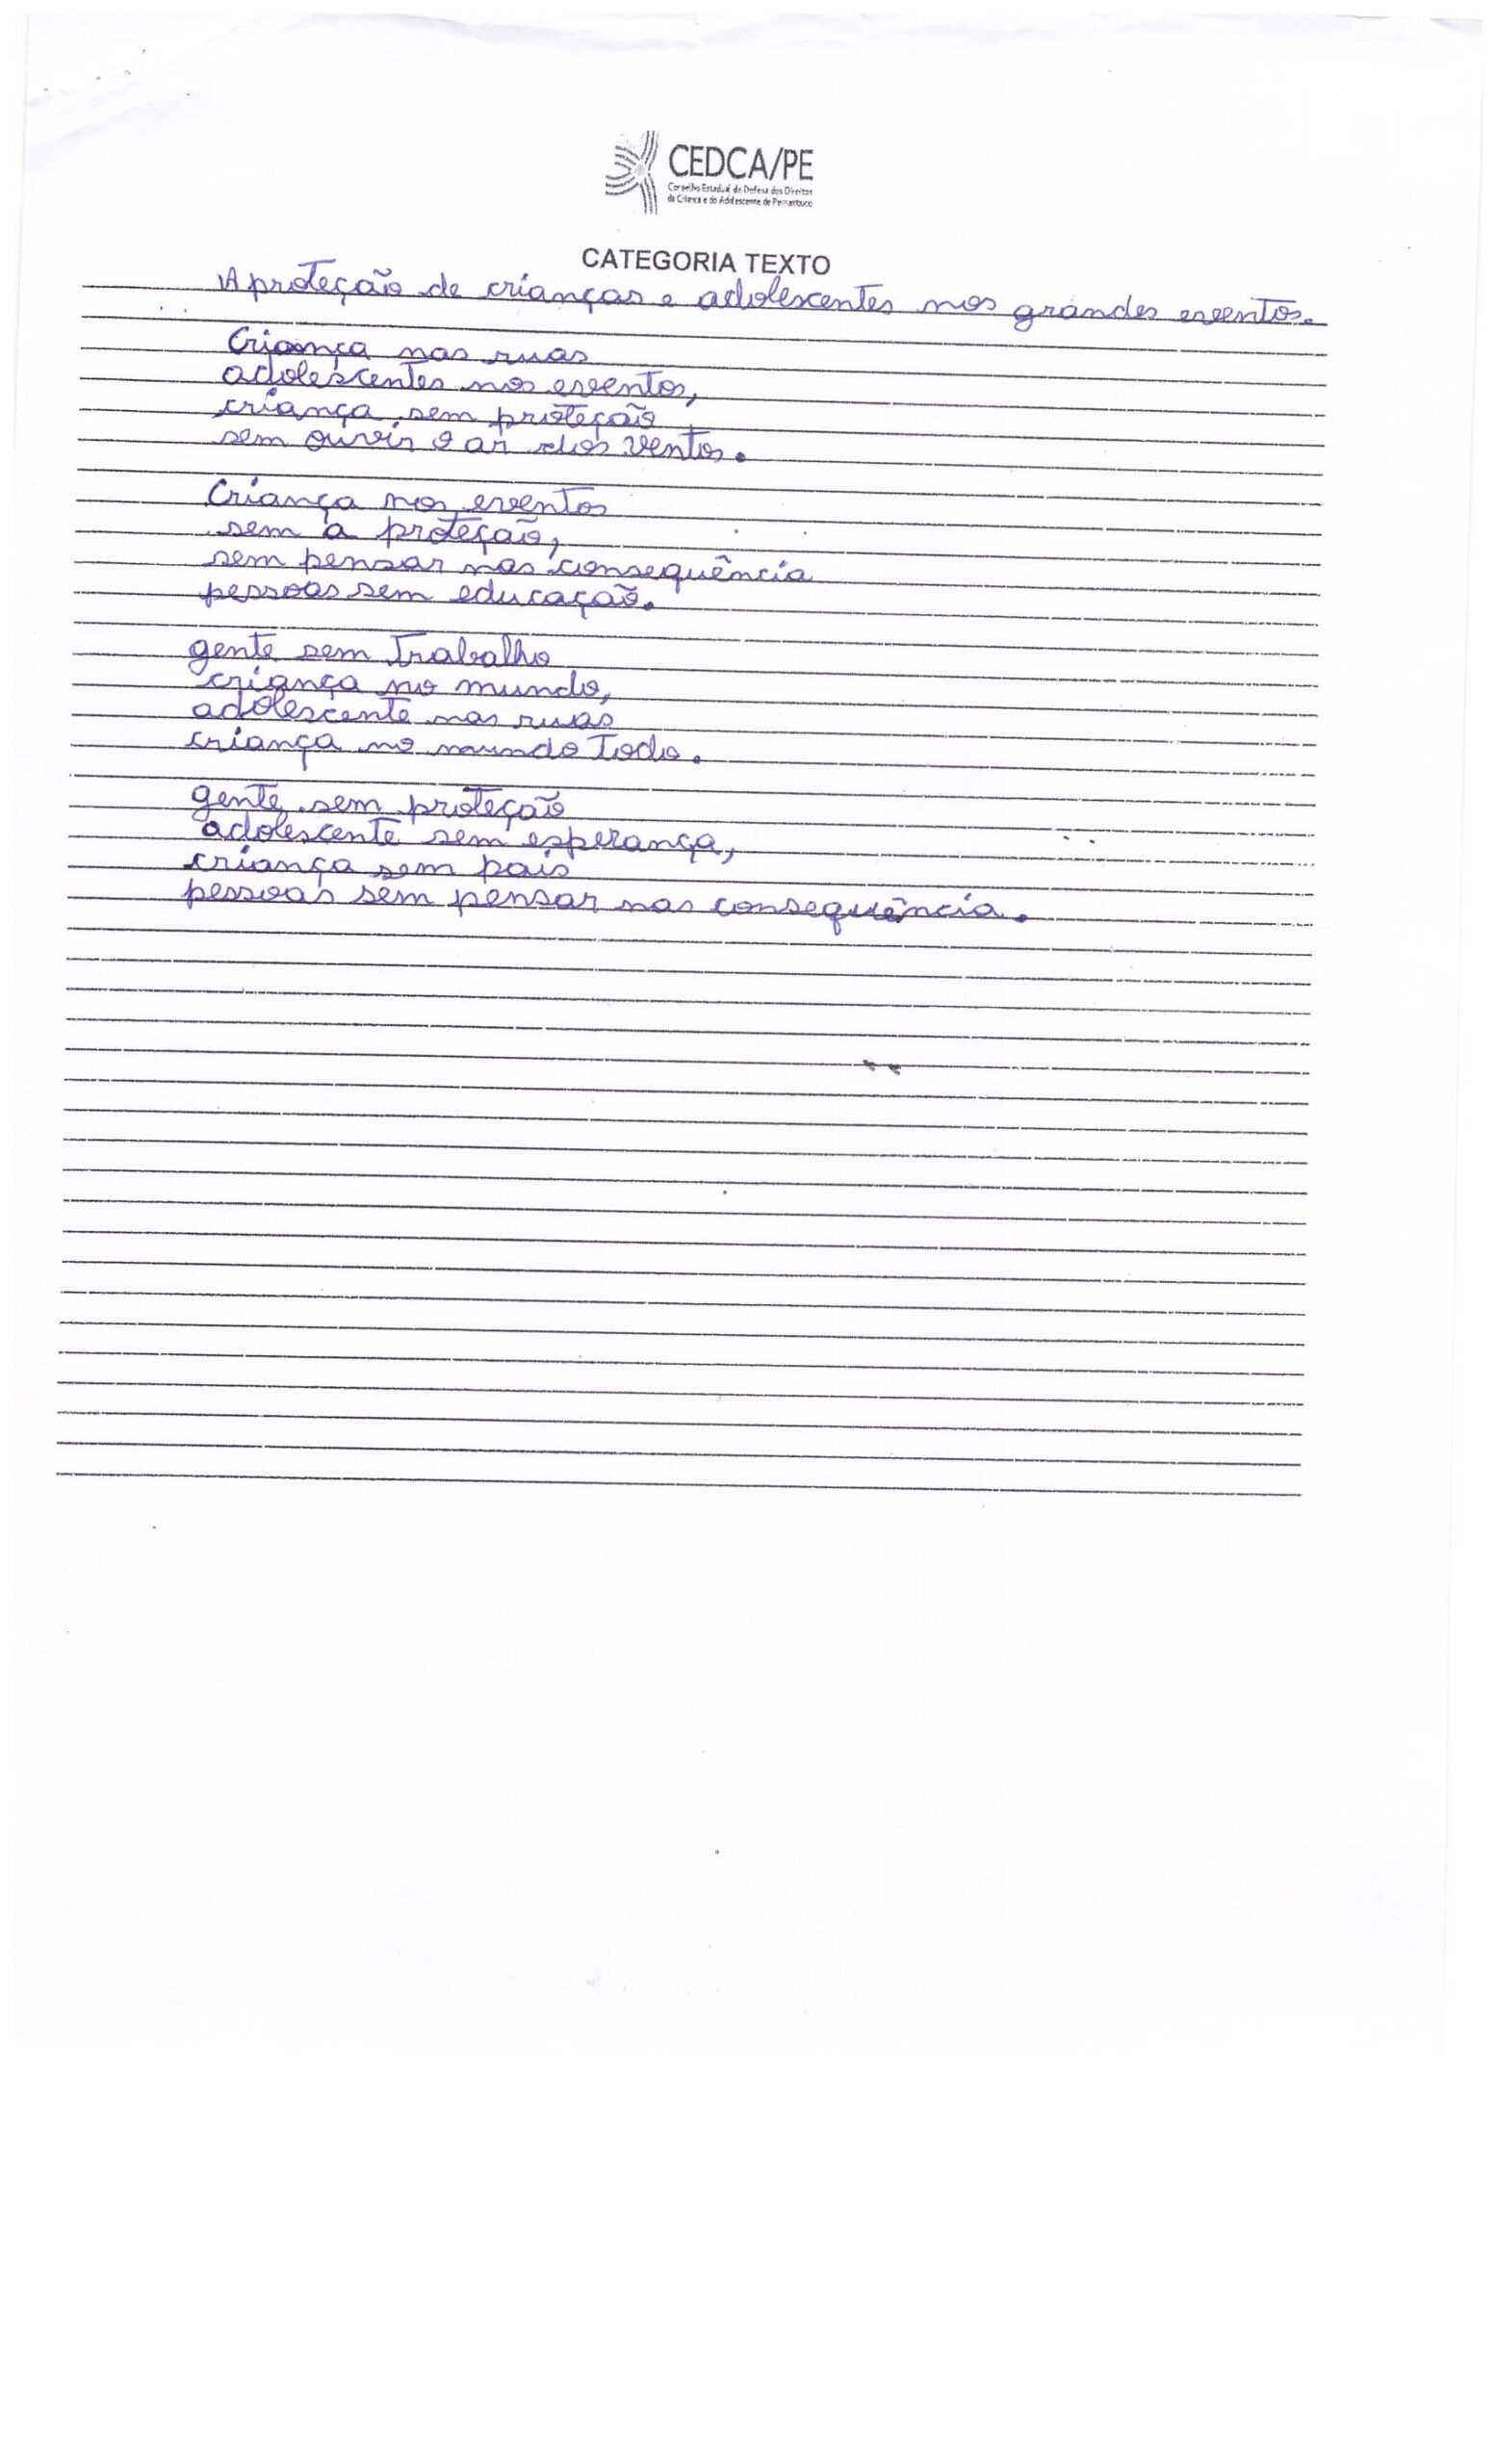 CEDCA/PE
Conselho Estadual de Defesa dos Direitos
da Criança e do Adolescente de Pernambuco
CATEGORIA TEXTO
A proteção de crianças e adolescentes nos grandes eventos.
Criança nas ruas
adolescentes nos eventos,
criança sem proteção
sem ouvir o ar dos ventos.
Criança nos eventos
sem a proteção,
sem pensar nas consequência
pessoas sem educação.
gente sem Trabalho
criança no mundo,
adolescente nas ruas
criança no mundo Todo.
gente sem proteção
adolescente sem esperança,
criança sem pais
pessoas sem pensar nas consequência.